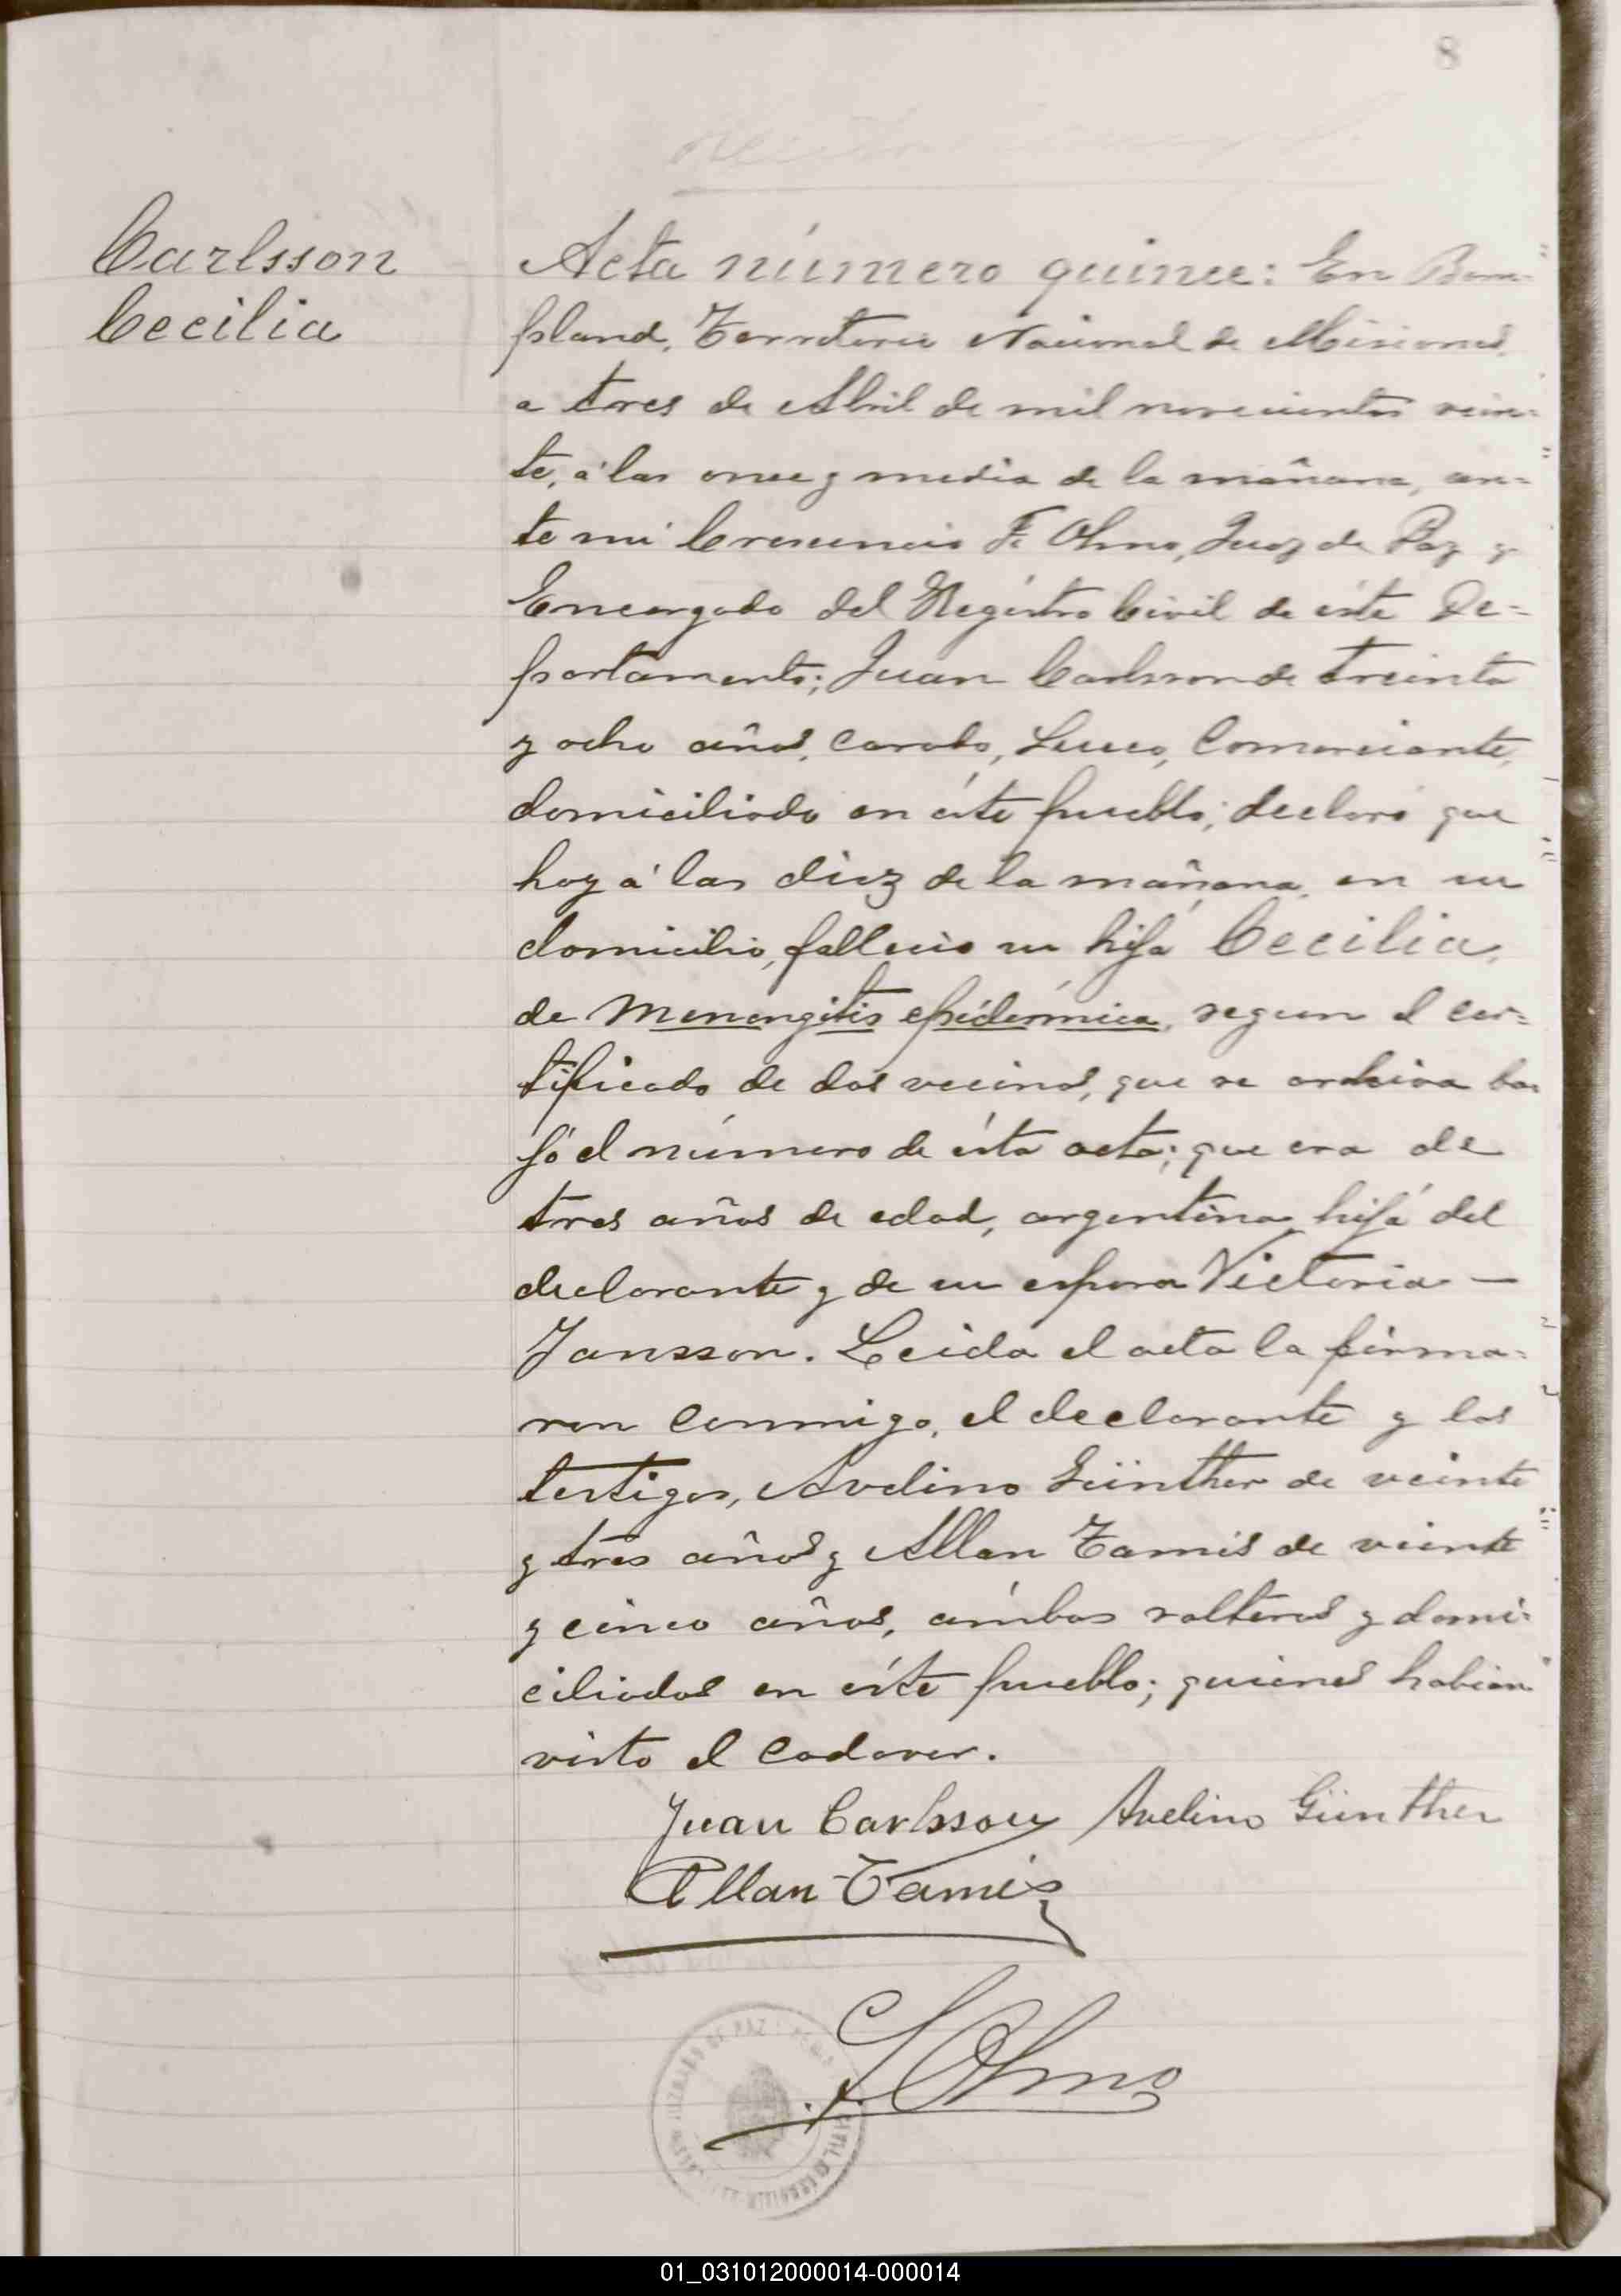 8
Carlsson
Cecilia
Acta número quince: En Bom-
pland, Territorio Nacional de Misiones,
a tres de Abril de mil novecientos vein-
te, á las once y media de la mañana, an-
te mi Cresencio F. Ohno, Juez de Paz y
Encargado del Registro Civil de éste De-
partamento; Juan Carlsson de treinta
y ocho años, casado, Sueco, Comerciante,
domiciliado en éste pueblo; declaró que
hoy á las diez de la mañana, en su
domicilio, falleció su hija Cecilia,
de Menengitis epidérmica, segun el cer-
tificado de dos vecinos, que se archiva ba-
jo el número de ésta acta; que era de
tres años de edad, argentina, hija del
declarante y de su esposa Victoria —
Jansson. Leida el acta la firma-
ron conmigo, el declarante y los
testigos, Avelino Günther de veinte
y tres años y Allan Tamis de veinte
y cinco años, ambos solteros y domi-
ciliados en éste pueblo; quienes habian
visto el cadaver.
Juan Carlsson Avelino Günther
Allan Tamis
F Ohno
JUZGADO DE PAZ
01_031012000014-000014